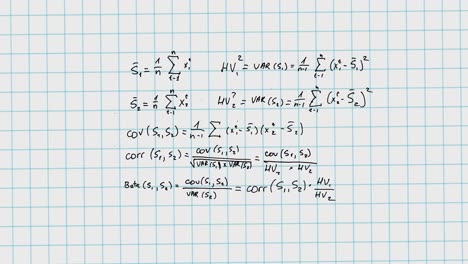 S̄₁ = 1/n Σ(i=1 to n) x₁ⁱ   HV₁² = VAR(S₁) = 1/(n-1) Σ(i=1 to n) (x₁ⁱ - S̄₁)²
S̄₂ = 1/n Σ(i=1 to n) x₂ⁱ   HV₂² = VAR(S₂) = 1/(n-1) Σ(i=1 to n) (x₂ⁱ - S̄₂)²
COV(S₁,S₂) = 1/(n-1) Σ (x₁ⁱ - S̄₁)(x₂ⁱ - S̄₂)
corr(S₁,S₂) = cov(S₁,S₂)/√(VAR(S₁) x VAR(S₂)) = cov(S₁,S₂)/(HV₁ x HV₂)
Beta(S₁,S₂) = cov(S₁,S₂)/VAR(S₂) = corr(S₁,S₂) · HV₁/HV₂